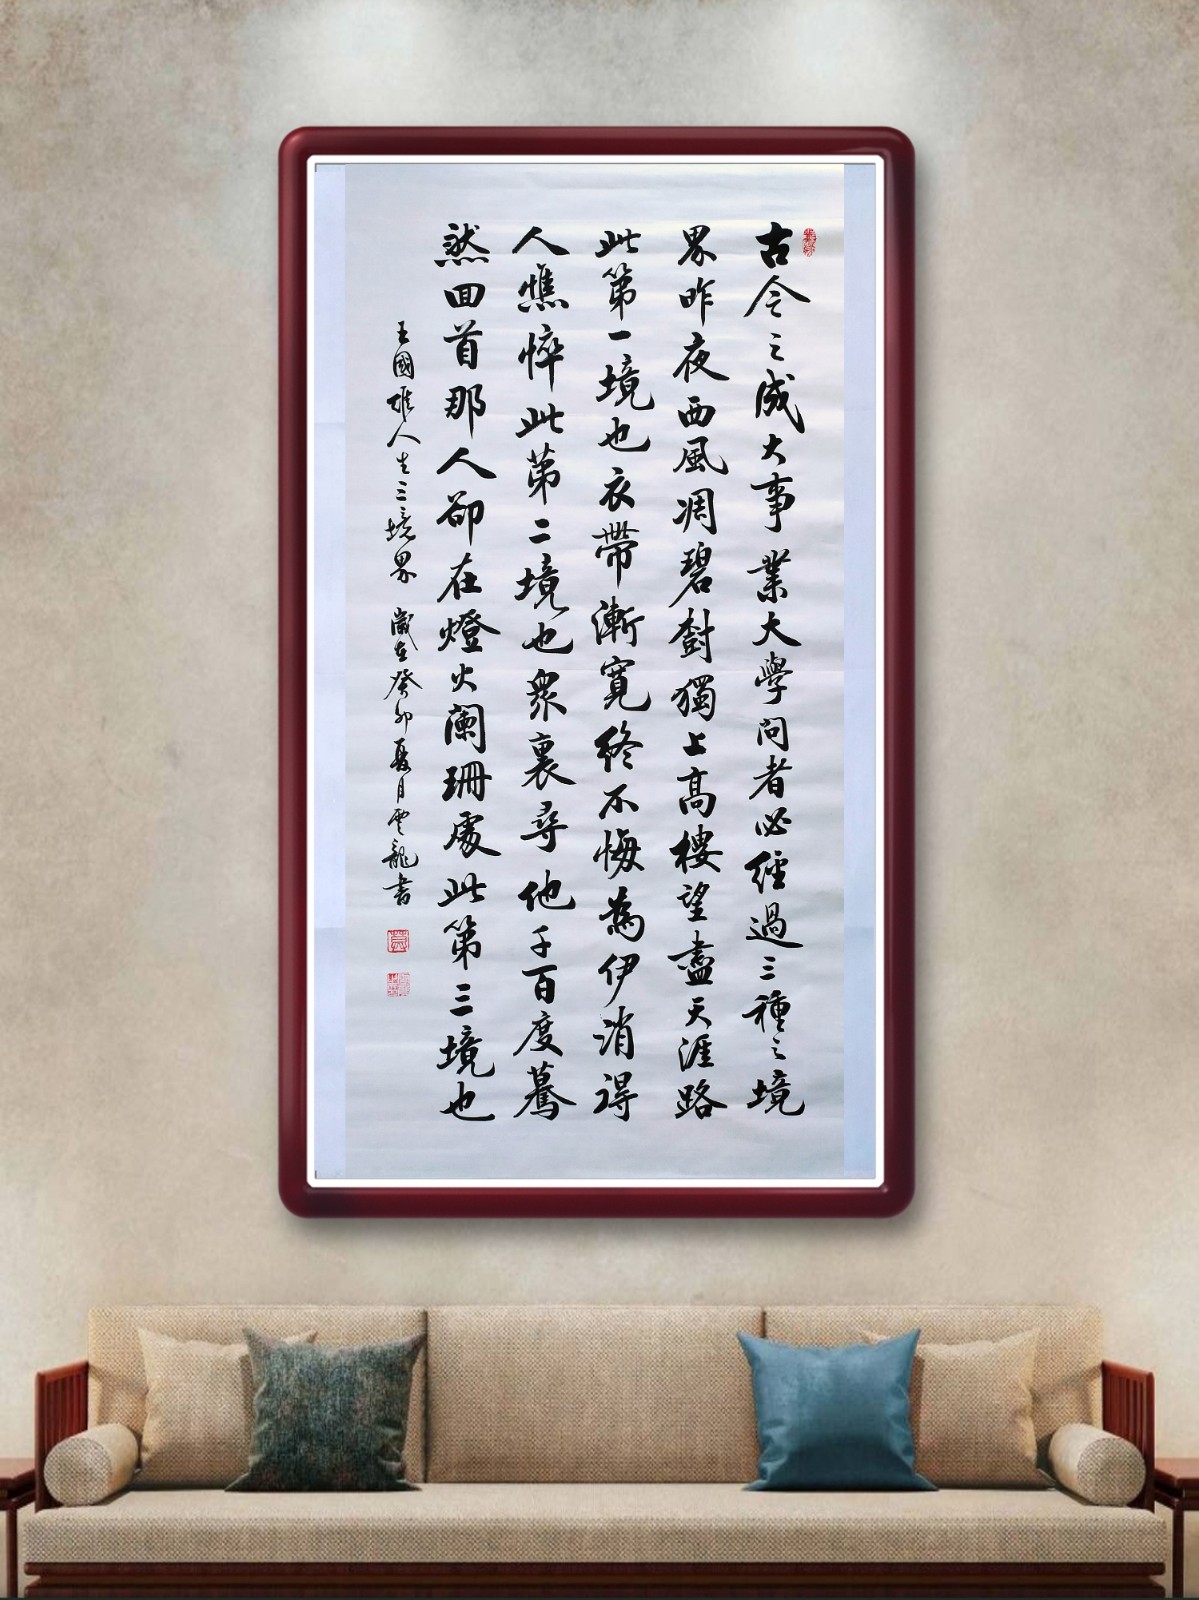 古今之成大事業大學問者必經過三種之境
界昨夜西風凋碧樹獨上高樓望盡天涯路
此第一境也衣帶漸寬終不悔為伊消得
人憔悴此第二境也眾裏尋他千百度驀
然回首那人卻在燈火闌珊處此第三境也
王國維人生三境界 歲在癸卯夏月雲龍書